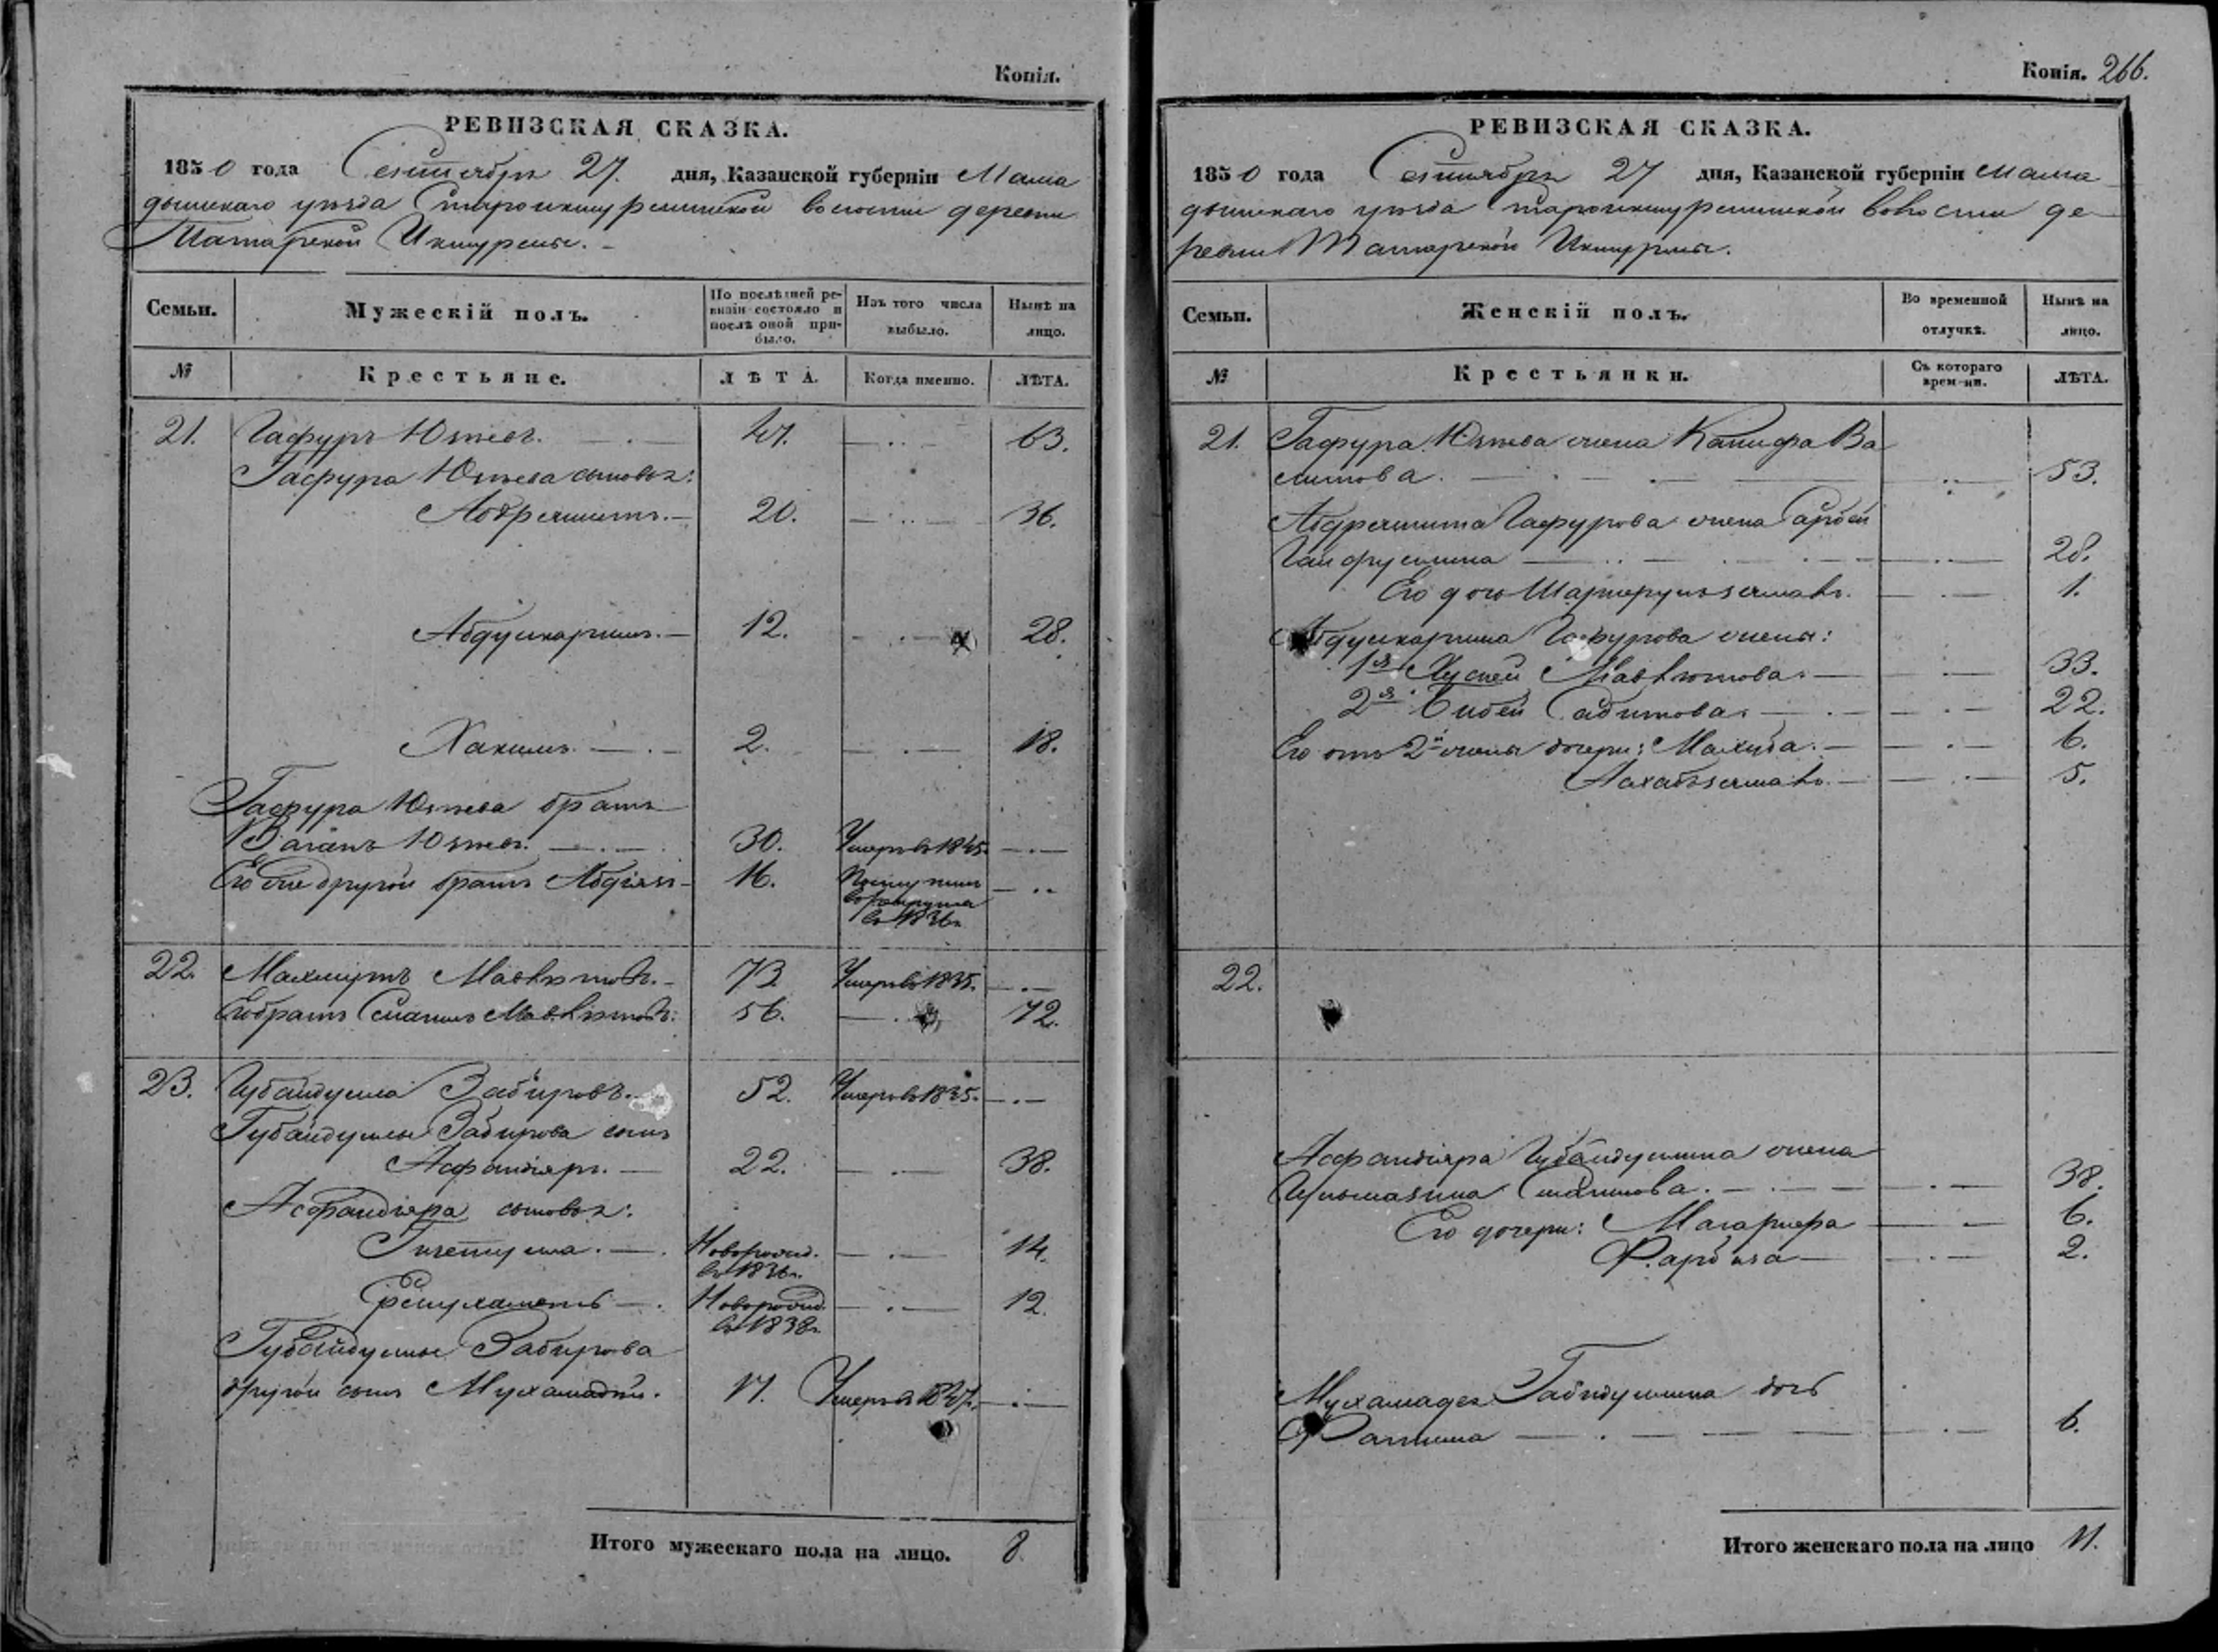 Копія.
РЕВИЗСКАЯ СКАЗКА.
1850 года Сентября 27. дня, Казанской губерніи Мама
дышскаго уѣзда Староикшурминской волости деревни
Татарской Икшурмы.
Семьи. Мужескій полъ. По послѣдней ре- Изъ того числа Нынѣ на
визіи состояло и выбыло. лицо.
послѣ оной при-
было.
№ Крестьяне. ЛѢТА. Когда именно. ЛѢТА.
21. Гафуръ Юзеевъ. 47. 63.
Гафура Юзеева сыновья:
Абдрешитъ. 20. 36.
Абдулкаримъ. 12. 28.
Хакимъ. 2. 18.
Гафура Юзеева братъ
Ваганъ Юзеевъ. 30. Умеръ въ 1845.
Его же другой братъ 16. Поступилъ
въ рекруты
въ 1836г.
22. Махмутъ Мавлютовъ. 73. Умеръ въ 1835.
Его братъ Смаилъ Мавлютовъ: 56. 72.
23. Губайдулла Забировъ. 52. Умеръ въ 1835.
Губайдуллы Забирова сынъ
Асфандіяръ. 22. 38.
Асфандіяра сыновья:
Гизетулла. Новорожд. 14.
въ 1836г.
Новорожд. 12.
въ 1838г.
Губайдуллы Забирова
другой сынъ Мухамадей. 17. Умеръ въ 1847.
Итого мужескаго пола на лицо. 8.
Копія. 266.
РЕВИЗСКАЯ СКАЗКА.
1850 года Сентября 27 дня, Казанской губерніи Мама
дышскаго уѣзда Староикшурминской волости де
ревни Татарской Икшурмы.
Семьи. Женскій полъ. Во временной Нынѣ на
отлучкѣ. лицо.
№ Крестьянки. Съ котораго ЛѢТА.
времени.
21. Гафура Юзеева жена Ханифа Ва
литова. 53.
Абдрешита Гафурова жена Сарбей
Гайфуллина 28.
Его дочь 1.
Абдулкарима Гафурова жены:
1я Хусней Мавлютова. 33.
2я Бибей Сабитова. 22.
Его отъ 2й жены дочери: Махуба. 6.
5.
22.
Асфандіяра Губайдуллина жена
Смаилова. 38.
Его дочери: Магарифа 6.
2.
Мухамадея Габидуллина дочь
Фатима 6.
Итого женскаго пола на лицо 11.